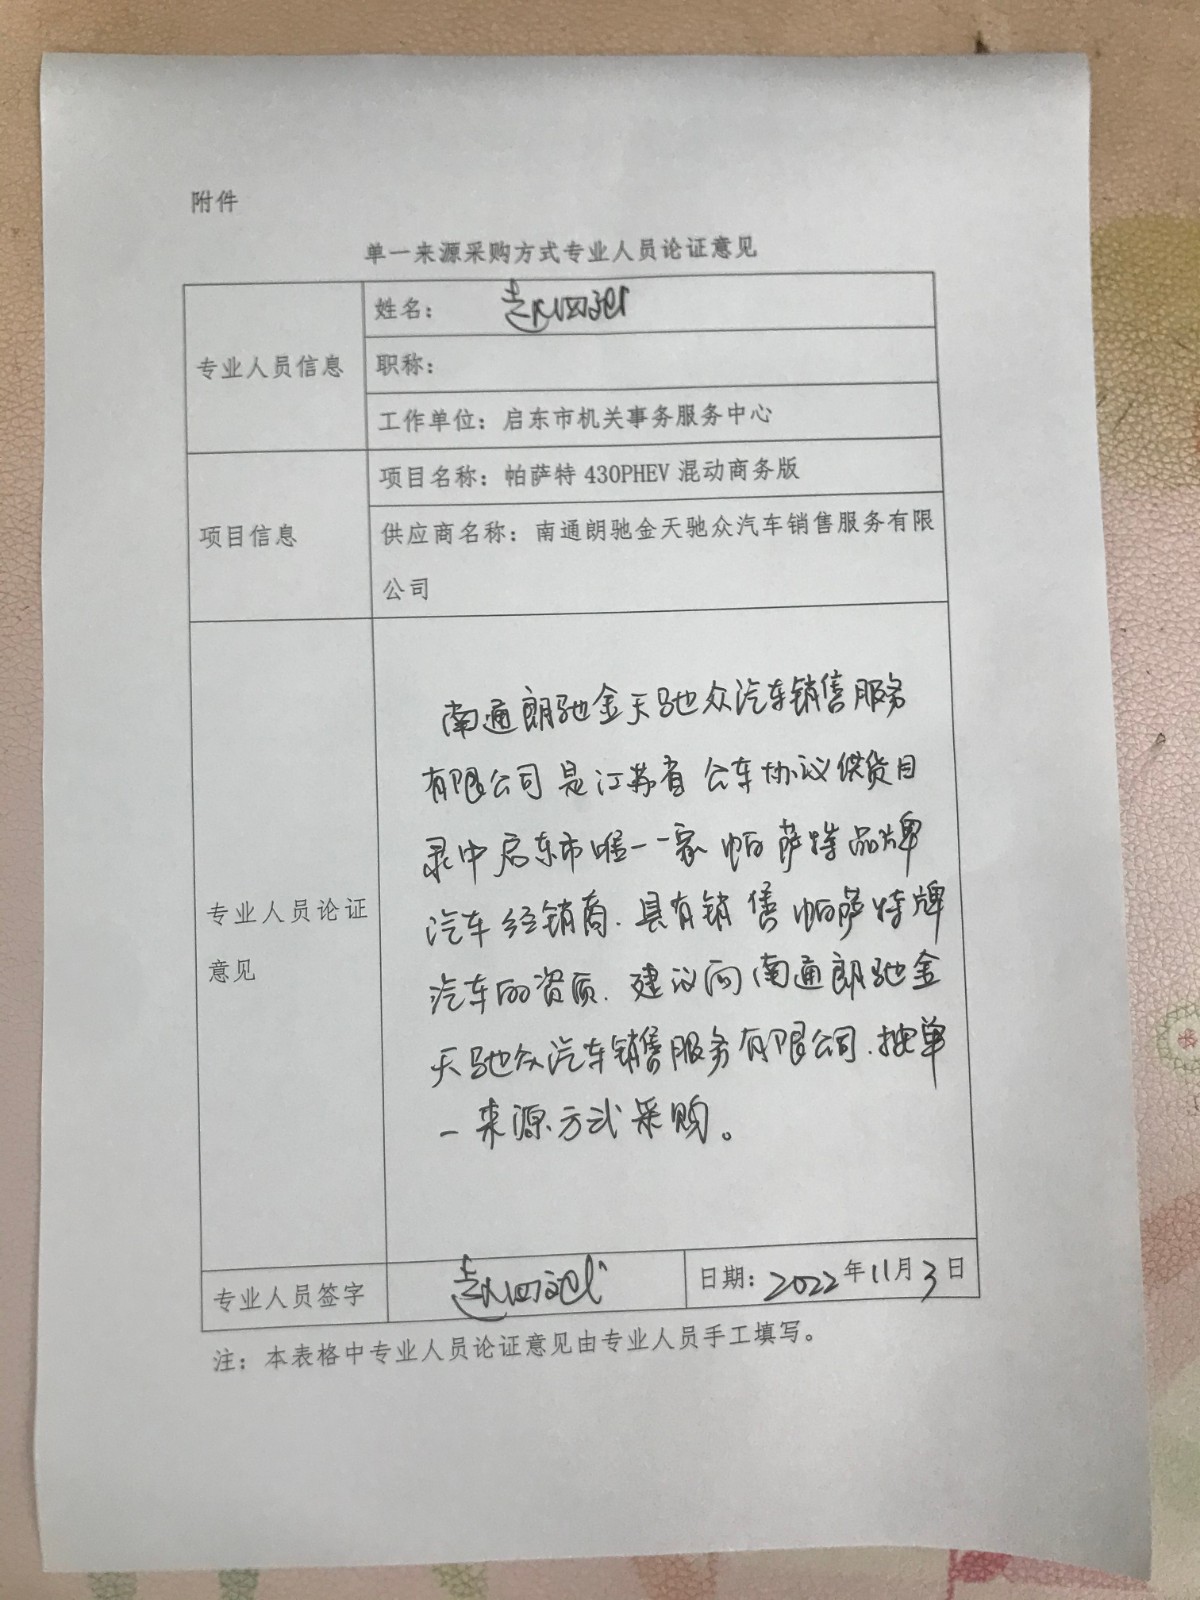 附件
单一来源采购方式专业人员论证意见
专业人员信息
姓名：
职称：
工作单位：启东市机关事务服务中心
项目信息
项目名称：帕萨特 430PHEV 混动商务版
供应商名称：南通朗驰金天驰众汽车销售服务有限
公司
专业人员论证
意见
南通朗驰金天驰众汽车销售服务
有限公司是江苏省公车协议供货目
录中启东市唯一一家帕萨特品牌
汽车经销商.具有销售帕萨特牌
汽车的资质.建议向南通朗驰金
天驰众汽车销售服务有限公司.按单
一来源方式采购。
专业人员签字
日期：2022年11月3日
注：本表格中专业人员论证意见由专业人员手工填写。